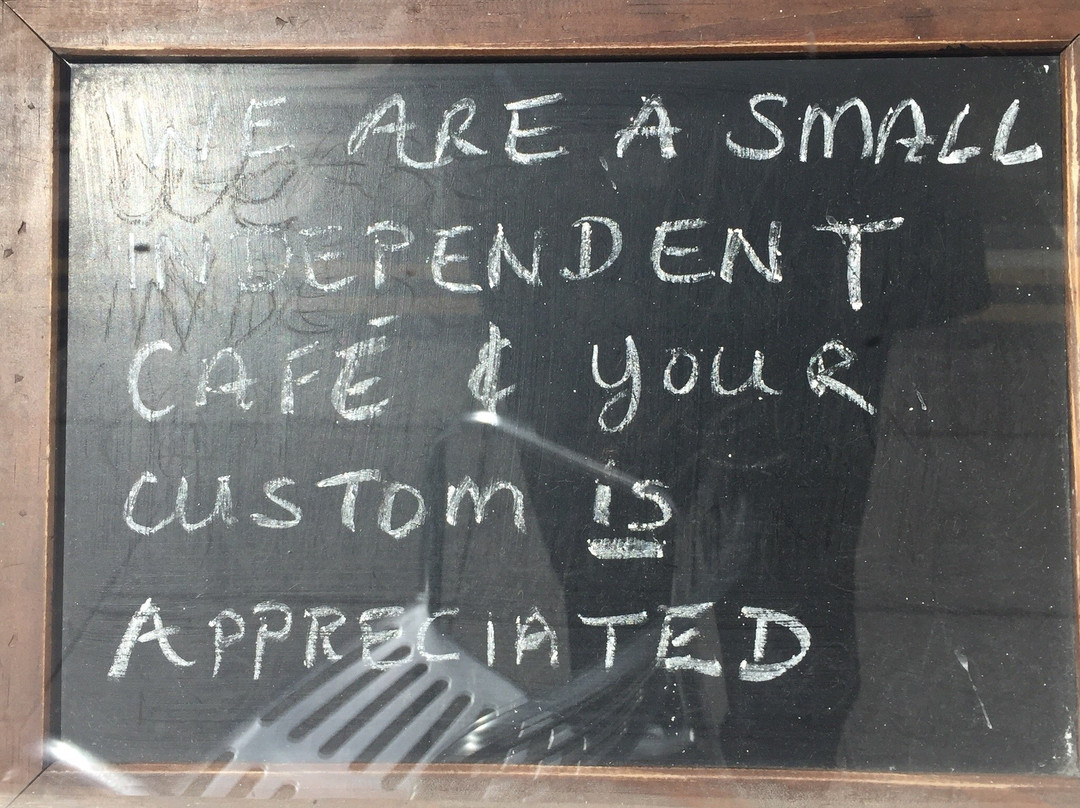 WE ARE A SMALL
INDEPENDENT
CAFÉ & YOUR
CUSTOM is
APPRECIATED